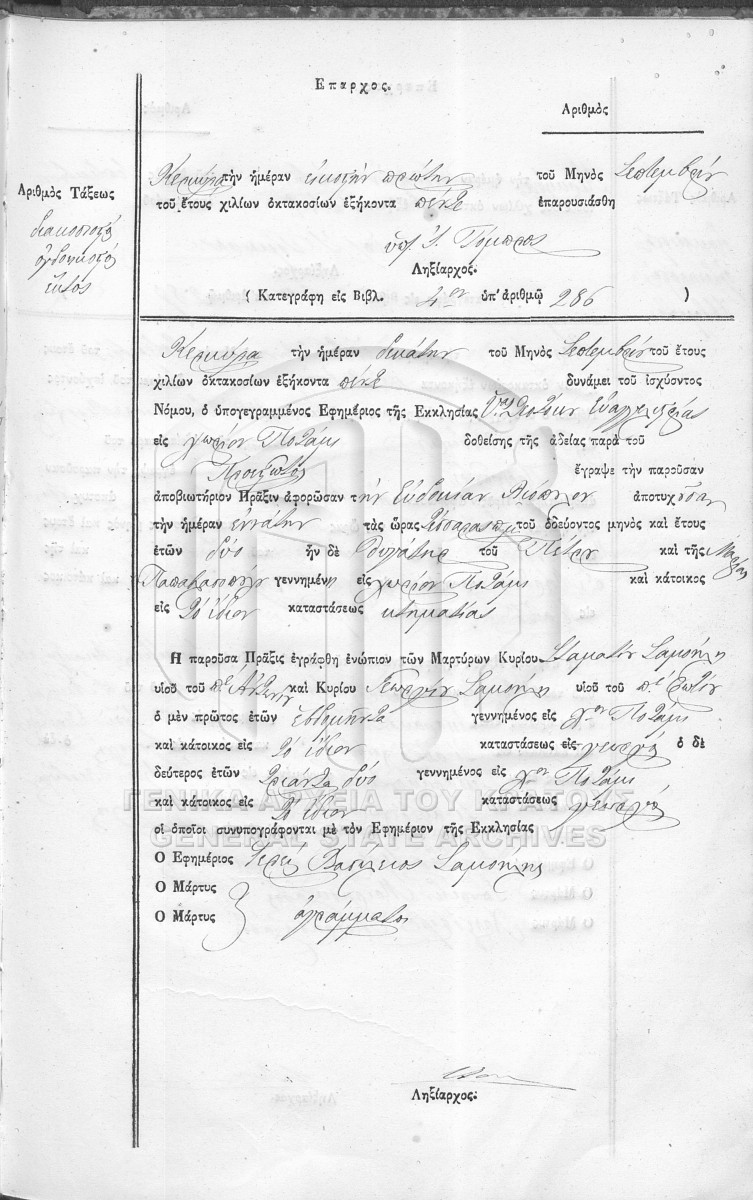 Ἔπαρχος.
Ἀριθμὸς
Κερκύρα τὴν ἡμέραν εἰκοστὴν πρώτην τοῦ Μηνὸς Σεπτεμβρίου
Ἀριθμὸς Τάξεως
τοῦ ἔτους χιλίων ὀκτακοσίων ἑξήκοντα πέντε ἐπαρουσιάσθη
διακοσιοστὸς
ὀγδοηκοστὸς
ἕκτος
Ληξίαρχος.
( Κατεγράφη εἰς Βιβλ. 4ον ὑπ' ἀριθμῷ 286 )
Κερκύρα τὴν ἡμέραν δεκάτην τοῦ Μηνὸς Σεπτεμβρίου τοῦ ἔτους
χιλίων ὀκτακοσίων ἑξήκοντα πέντε δυνάμει τοῦ ἰσχύοντος
Νόμου, ὁ ὑπογεγραμμένος Ἐφημέριος τῆς Ἐκκλησίας Εὐαγγελιστρίας
εἰς χωρίον Ποτάμι δοθείσης τῆς ἀδείας παρὰ τοῦ
Προεστῶτος ἔγραψε τὴν παροῦσαν
ἀποβιωτήριον Πρᾶξιν ἀφορῶσαν τὴν Εὐδοκίαν ἀποτυχοῦσαν
τὴν ἡμέραν ἐννάτην τὰς ὥρας τέσσαρας τοῦ ὁδεύοντος μηνὸς καὶ ἔτους
ἐτῶν δύο ἦν δὲ θυγάτηρ τοῦ Πέτρου καὶ τῆς Μαρίας
γεννημένη εἰς χωρίον Ποτάμι καὶ κάτοικος
εἰς τὸ ἴδιον καταστάσεως κτηματίας
Ἡ παροῦσα Πρᾶξις ἐγράφθη ἐνώπιον τῶν Μαρτύρων Κυρίου Σταματίου Σαμοίλη
υἱοῦ τοῦ πτὲ Ἀντωνίου καὶ Κυρίου Γεωργίου Σαμοίλη υἱοῦ τοῦ πτὲ
ὁ μὲν πρῶτος ἐτῶν ἑβδομήντα γεννημένος εἰς χον Ποτάμι
καὶ κάτοικος εἰς τὸ ἴδιον καταστάσεως εἰς γεωργὸς ὁ δὲ
δεύτερος ἐτῶν τριάντα δύο γεννημένος εἰς χον Ποτάμι
ΓΕΝΙΚΑ ΑΡΧΕΙΑ ΤΟΥ ΚΡΑΤΟΥΣ
καὶ κάτοικος εἰς τὸ ἴδιον καταστάσεως γεωργὸς
οἱ ὁποῖοι συνυπογράφονται μὲ τὸν Ἐφημέριον τῆς Ἐκκλησίας
GENERAL STATE ARCHIVES
Ὁ Ἐφημέριος Ἱερεὺς Βασίλειος Σαμοίλης
Ὁ Μάρτυς
Ὁ Μάρτυς ἀγράμματοι
Ληξίαρχος: